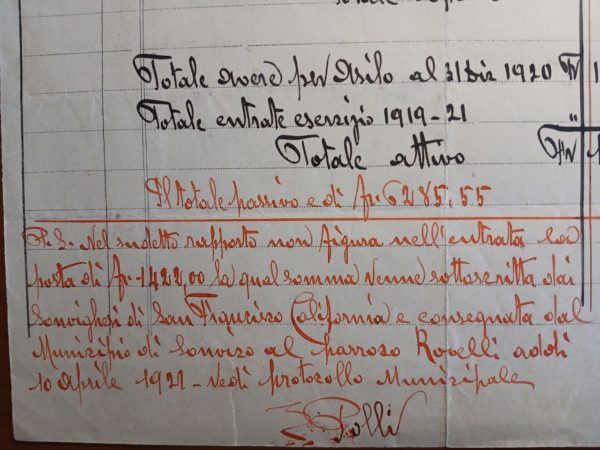 Totale avere per Asilo al 31 Dic 1920 Fr 1
Totale entrate esercizio 1919-21 "
Totale attivo Fr
Il totale passivo e di fr. 6285.55
P.S. Nel sudetto rapporto non figura nell'entrata la
posta di fr. 1422,00 la qual somma venne sottoscritta dai
Sonvighesi di San Francisco California e consegnata dal
Municipio di Sonvico al parroco Rovelli addì
10 aprile 1921 - vedi protocollo Municipale
Polli